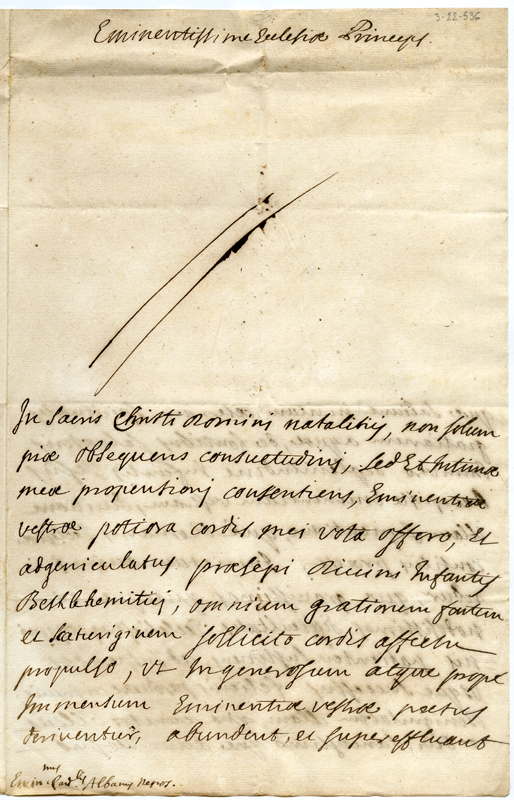 3-22-536
Eminentissime Ecclesiæ Princeps.
In Sacris Christi Domini natalitijs, non solum
piæ obsequens consuetudini, sed Et Intimæ
meæ propensioni consentiens, Eminentiæ
vestræ potiora cordis mei vota offero, Et
adgeniculatus præsepi Divini Infantis
Bethlehemitici, omnium gratiarum fontem
et scaturiginem sollicito cordis affectu
propulso, vt In generosum atque prope
Immensum Eminentiæ vestræ pectus
deriventur, abundent, et supereffluant
Emin.mus Card.lis Albanus Nepos.